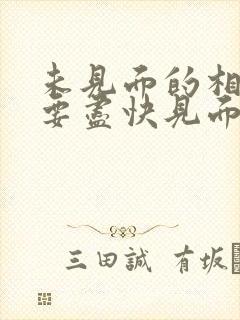 未見而的相
要盡快見而
三田誠 有坂